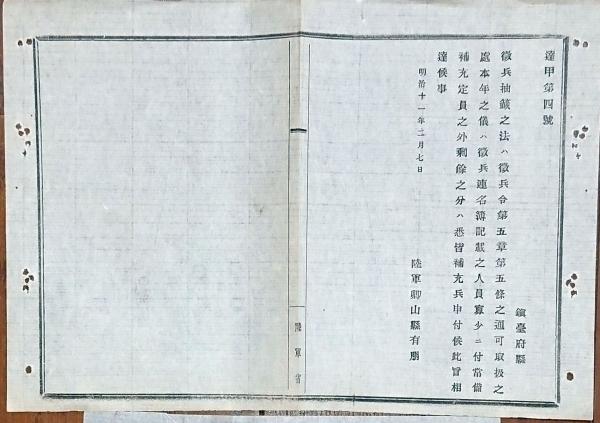 達甲第四號
鎭臺府縣
徵兵抽籤之法ハ徵兵令第五章第五條之通可取扱之
處本年之儀ハ徵兵連名簿記載之人員寡少ニ付常備
補充定員之外剩餘之分ハ悉皆補充兵申付候此旨相
達候事
明治十一年二月七日
陸軍卿山縣有朋
陸軍省